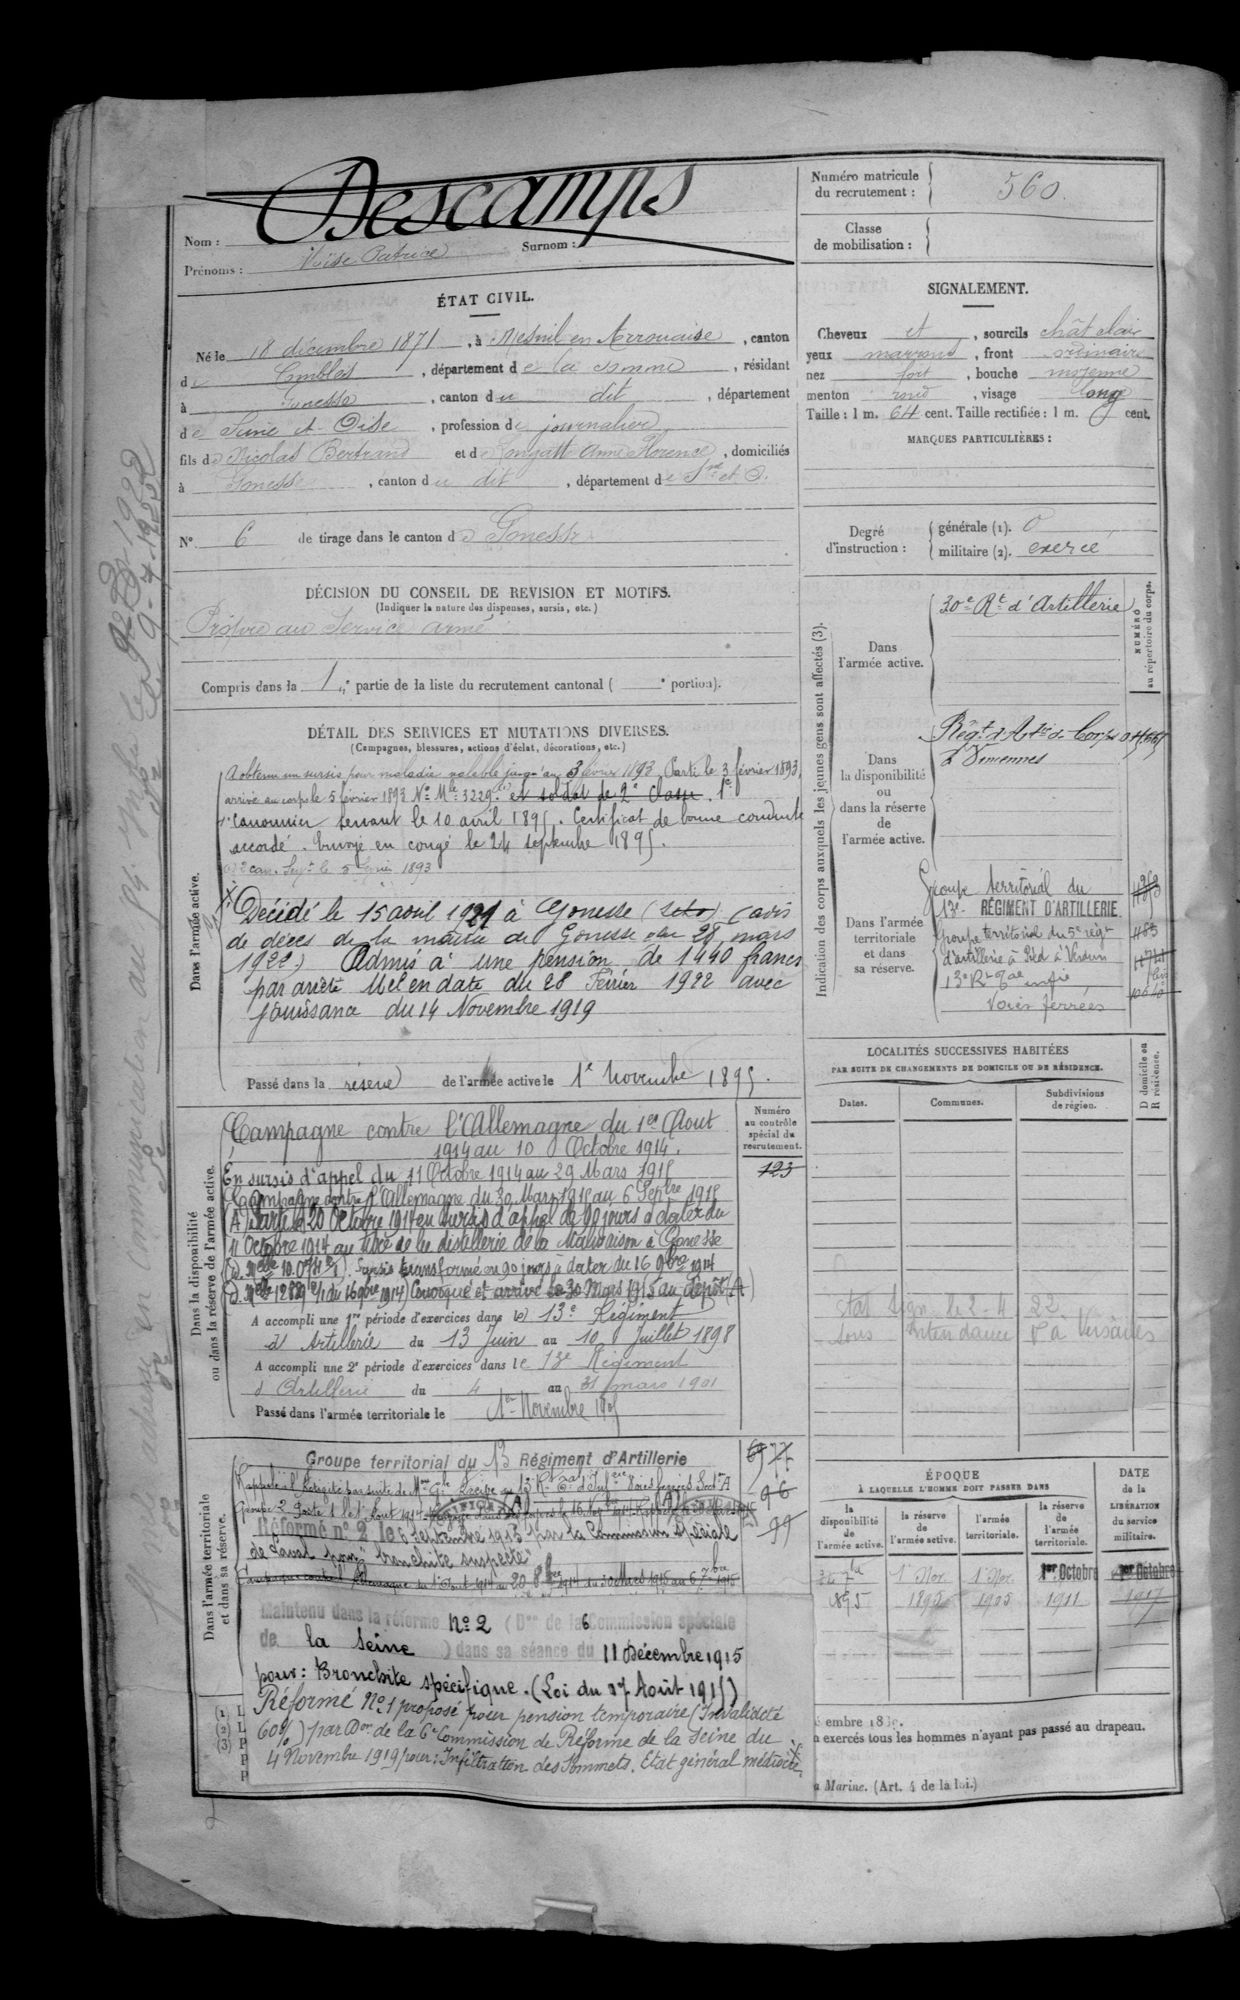 Nom : Descamps Surnom :
Prénoms : Moïse Patrice
Numéro matricule du recrutement : 560.
Classe de mobilisation :
ÉTAT CIVIL.
Né le 18 décembre 1871, à Mesnil en Arrouaise, canton
de Combles, département de la Somme, résidant
à Gonesse, canton du dit, département
de Seine et Oise, profession de journalier
fils de Nicolas Bertrand et de Anne Florence, domiciliés
à Gonesse, canton du dit, département de Sne et O.
N° 6 de tirage dans le canton de Gonesse
DÉCISION DU CONSEIL DE REVISION ET MOTIFS.
(Indiquer la nature des dispenses, sursis, etc.)
Propre au Service armé
Compris dans la 1re partie de la liste du recrutement cantonal ( e portion).
SIGNALEMENT.
Cheveux et, sourcils chât clair
yeux marrons, front ordinaire
nez fort, bouche moyenne
menton rond, visage long
Taille : 1 m. 64 cent. Taille rectifiée : 1 m. cent.
MARQUES PARTICULIÈRES :
Degré d'instruction : générale (1). 0
militaire (2). exercé
DÉTAIL DES SERVICES ET MUTATIONS DIVERSES.
(Campagnes, blessures, actions d'éclat, décorations, etc.)
Dans l'armée active.
A obtenu un sursis pour maladie valable jusqu'au 3 février 1893. Parti le 3 février 1893,
arrivé au corps le 5 février 1893 N° Mle 3229. et soldat de 2e classe. 1er
Canonnier servant le 10 avril 1895. Certificat de bonne conduite
accordé. Envoyé en congé le 24 septembre 1895.
2e can. le 5 février 1893
Décédé le 15 avril 1921 à Gonesse (Seto) (avis
de décès de la mairie de Gonesse du 28 mars
1922) Admis à une pension de 1440 francs
par arrêté Mel en date du 28 Février 1922 avec
jouissance du 14 Novembre 1919
Passé dans la réserve de l'armée active le 1er Novembre 1895.
Dans la disponibilité ou dans la réserve de l'armée active.
Numéro au contrôle spécial du recrutement.
123
Campagne contre l'Allemagne du 1er Août
1914 au 10 Octobre 1914.
En sursis d'appel du 11 Octobre 1914 au 29 Mars 1915
Campagne contre l'Allemagne du 30 Mars 1915 au 6 Septre 1915
(A) Parti le 20 Octobre 1914 en sursis d'appel de 90 jours à dater du
11 Octobre 1914 au titre de la distillerie de la Malmaison à Gonesse
Sursis transformé en 90 jours à dater du 16 9bre 1914
(D. Melle 12889 4/1 du 16 9bre 1914) Convoqué et arrivé le 30 Mars 1915 au dépôt (A)
A accompli une 1re période d'exercices dans le 13e Régiment
d'Artillerie du 13 Juin au 10 Juillet 1898
A accompli une 2e période d'exercices dans le 13e Régiment
d'Artillerie du 4 au 31 mars 1901
Passé dans l'armée territoriale le 1er Novembre 1905
Dans l'armée territoriale et dans sa réserve.
Groupe territorial du 13 Régiment d'Artillerie
Réformé n° 2 le 6 Septembre 1915 par la Commission Spéciale
de Laval pour "bronchite suspecte"
Maintenu dans la réforme N° 2 (Don de la 6 Commission spéciale
de la Seine) dans sa séance du 11 Décembre 1915
pour : Bronchite spécifique. (Loi du 17 Août 1915)
Réformé N° 1 proposé pour pension temporaire (Invalidité
60%) par Don de la 6e Commission de Réforme de la Seine du
4 Novembre 1919 pour : Infiltration des Sommets. Etat général médiocre.
Indication des corps auxquels les jeunes gens sont affectés (3).
NUMÉRO au répertoire du corps.
Dans l'armée active.
30e Rt d'Artillerie
Dans la disponibilité ou dans la réserve de l'armée active.
Régt d'Artie de Corps
à Vincennes
Dans l'armée territoriale et dans sa réserve.
Groupe territorial du
13e RÉGIMENT D'ARTILLERIE
Groupe territorial du 5e régt
d'artillerie à Pied à Verdun
Voies ferrées
LOCALITÉS SUCCESSIVES HABITÉES
PAR SUITE DE CHANGEMENTS DE DOMICILE OU DE RÉSIDENCE.
D domicile ou R résidence.
Dates. Communes. Subdivisions de région.
Etat Sign. le 2-4 22
Sous Intendance à Versailles
ÉPOQUE
À LAQUELLE L'HOMME DOIT PASSER DANS
la disponibilité de l'armée active. la réserve de l'armée active. l'armée territoriale. la réserve de l'armée territoriale.
DATE de la LIBÉRATION du service militaire.
1er Nov. 1er Nov. 1er Octobre 1er Octobre
1895 1895 1905 1911 1917
embre 18
exercés tous les hommes n'ayant pas passé au drapeau.
a Marine. (Art. 4 de la loi.)